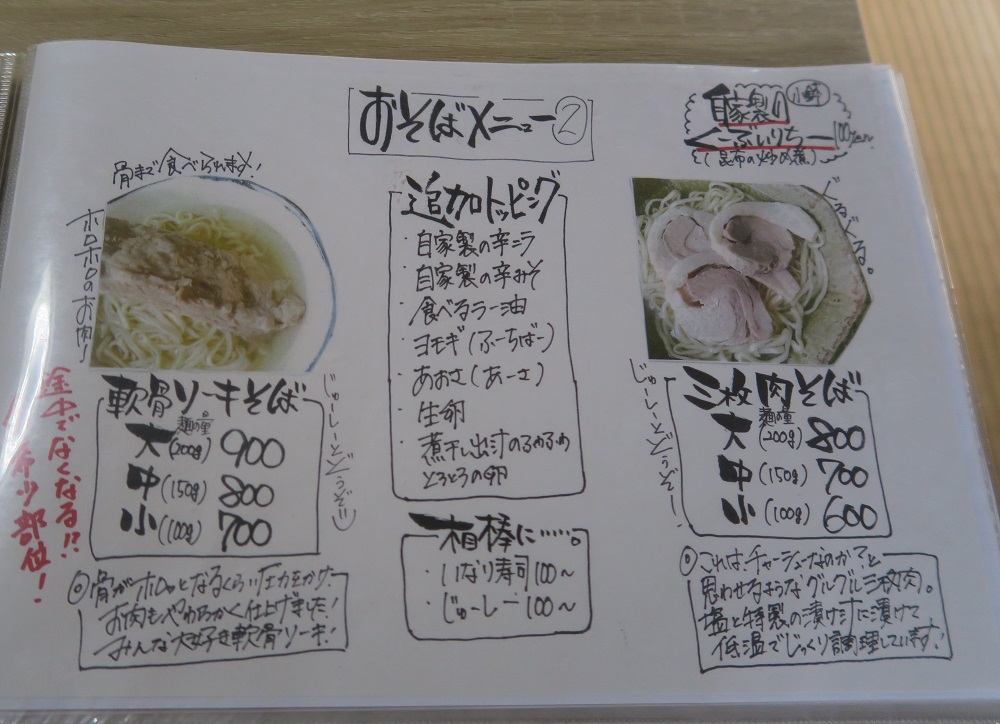 おそばメニュー②
自家製 小鉢
くーぶいりちー 100
(昆布の炒め煮)
骨まで食べられます!
ホロホロのお肉
軟骨ソーキそば
麺の量
大(200g) 900
中(150g) 800
小(100g) 700
じゅーしーズ
途中でなくなる!!
部位!
◎骨がホロッとなるくらい圧力をかけ、
お肉もやわらかく仕上げました!
みんな大好き軟骨ソーキ!
追加トッピング
・自家製の辛ニラ
・自家製の辛みそ
・食べるラー油
・ヨモギ(ふーちばー)
・あおさ(あーさ)
・生卵
・煮干し出汁のるめるめ
とろとろの卵
相棒に……。
・いなり寿司 100~
・じゅーしー 100~
ぐるぐる。
三枚肉そば
麺の量
大(200g) 800
中(150g) 700
小(100g) 600
◎これは、チャーシューなのか?と
思わせるようなグルグル三枚肉。
塩と特製の漬け汁に漬けて
低温でじっくり調理しています!